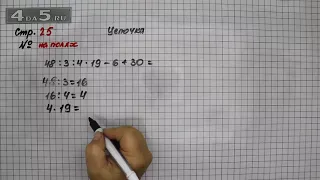 4DA5.RU
Стр. 25 Цепочка
№ на полях
48 : 3 : 4 · 19 - 6 + 30 =
48 : 3 = 16
16 : 4 = 4
4 · 19 =